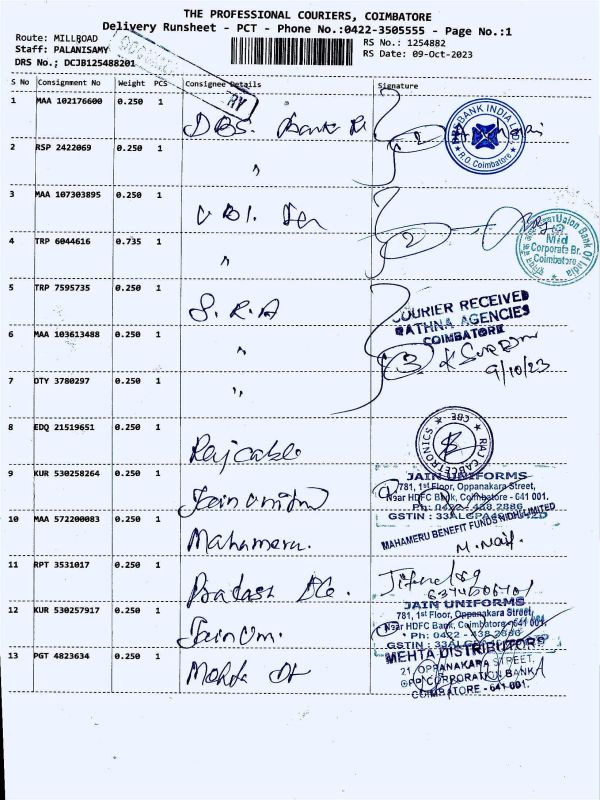 THE PROFESSIONAL COURIERS, COIMBATORE
Delivery Runsheet - PCT - Phone No.:0422-3505555 - Page No.:1
Route: MILLROAD
RS No.: 1254882
Staff: PALANISAMY
RS Date: 09-Oct-2023
DRS No.; DCJB125488201
S No Consignment No Weight PCS Consignee Details Signature
1 MAA 102176600 0.250 1 DBS. Bank
R.O. Coimbatore
2 RSP 2422069 0.250 1 "
3 MAA 107303895 0.250 1 U B I.
Union Bank Of India
Mid Corporate Br.
Coimbatore
4 TRP 6044616 0.735 1 "
2
5 TRP 7595735 0.250 1 S. R. A
COURIER RECEIVED
RATHNA AGENCIES
COIMBATORE
6 MAA 103613488 0.250 1 "
3
9/10/23
7 DTY 3780297 0.250 1 "
8 EDQ 21519651 0.250 1 Rajcable
RAJ CABCETRONICS * CBE *
9 KUR 530258264 0.250 1 Jain
JAIN UNIFORMS
781, 1st Floor, Oppanakara Street,
Near HDFC Bank, Coimbatore - 641 001.
Ph: 0422 - 438 2886
10 MAA 572200083 0.250 1 Mahameru.
MAHAMERU BENEFIT FUNDS NIDHI LIMITED
11 RPT 3531017 0.250 1
12 KUR 530257917 0.250 1 Jain Um.
JAIN UNIFORMS
781, 1st Floor, Oppanakara Street,
Near HDFC Bank, Coimbatore - 641 001.
Ph: 0422 - 438 2886
13 PGT 4823634 0.250 1 Mehta Dt
MEHTA DISTRIBUTORS
21, OPPANAKARA STREET,
OPP CORPORATION BANK,
COIMBATORE - 641 001.